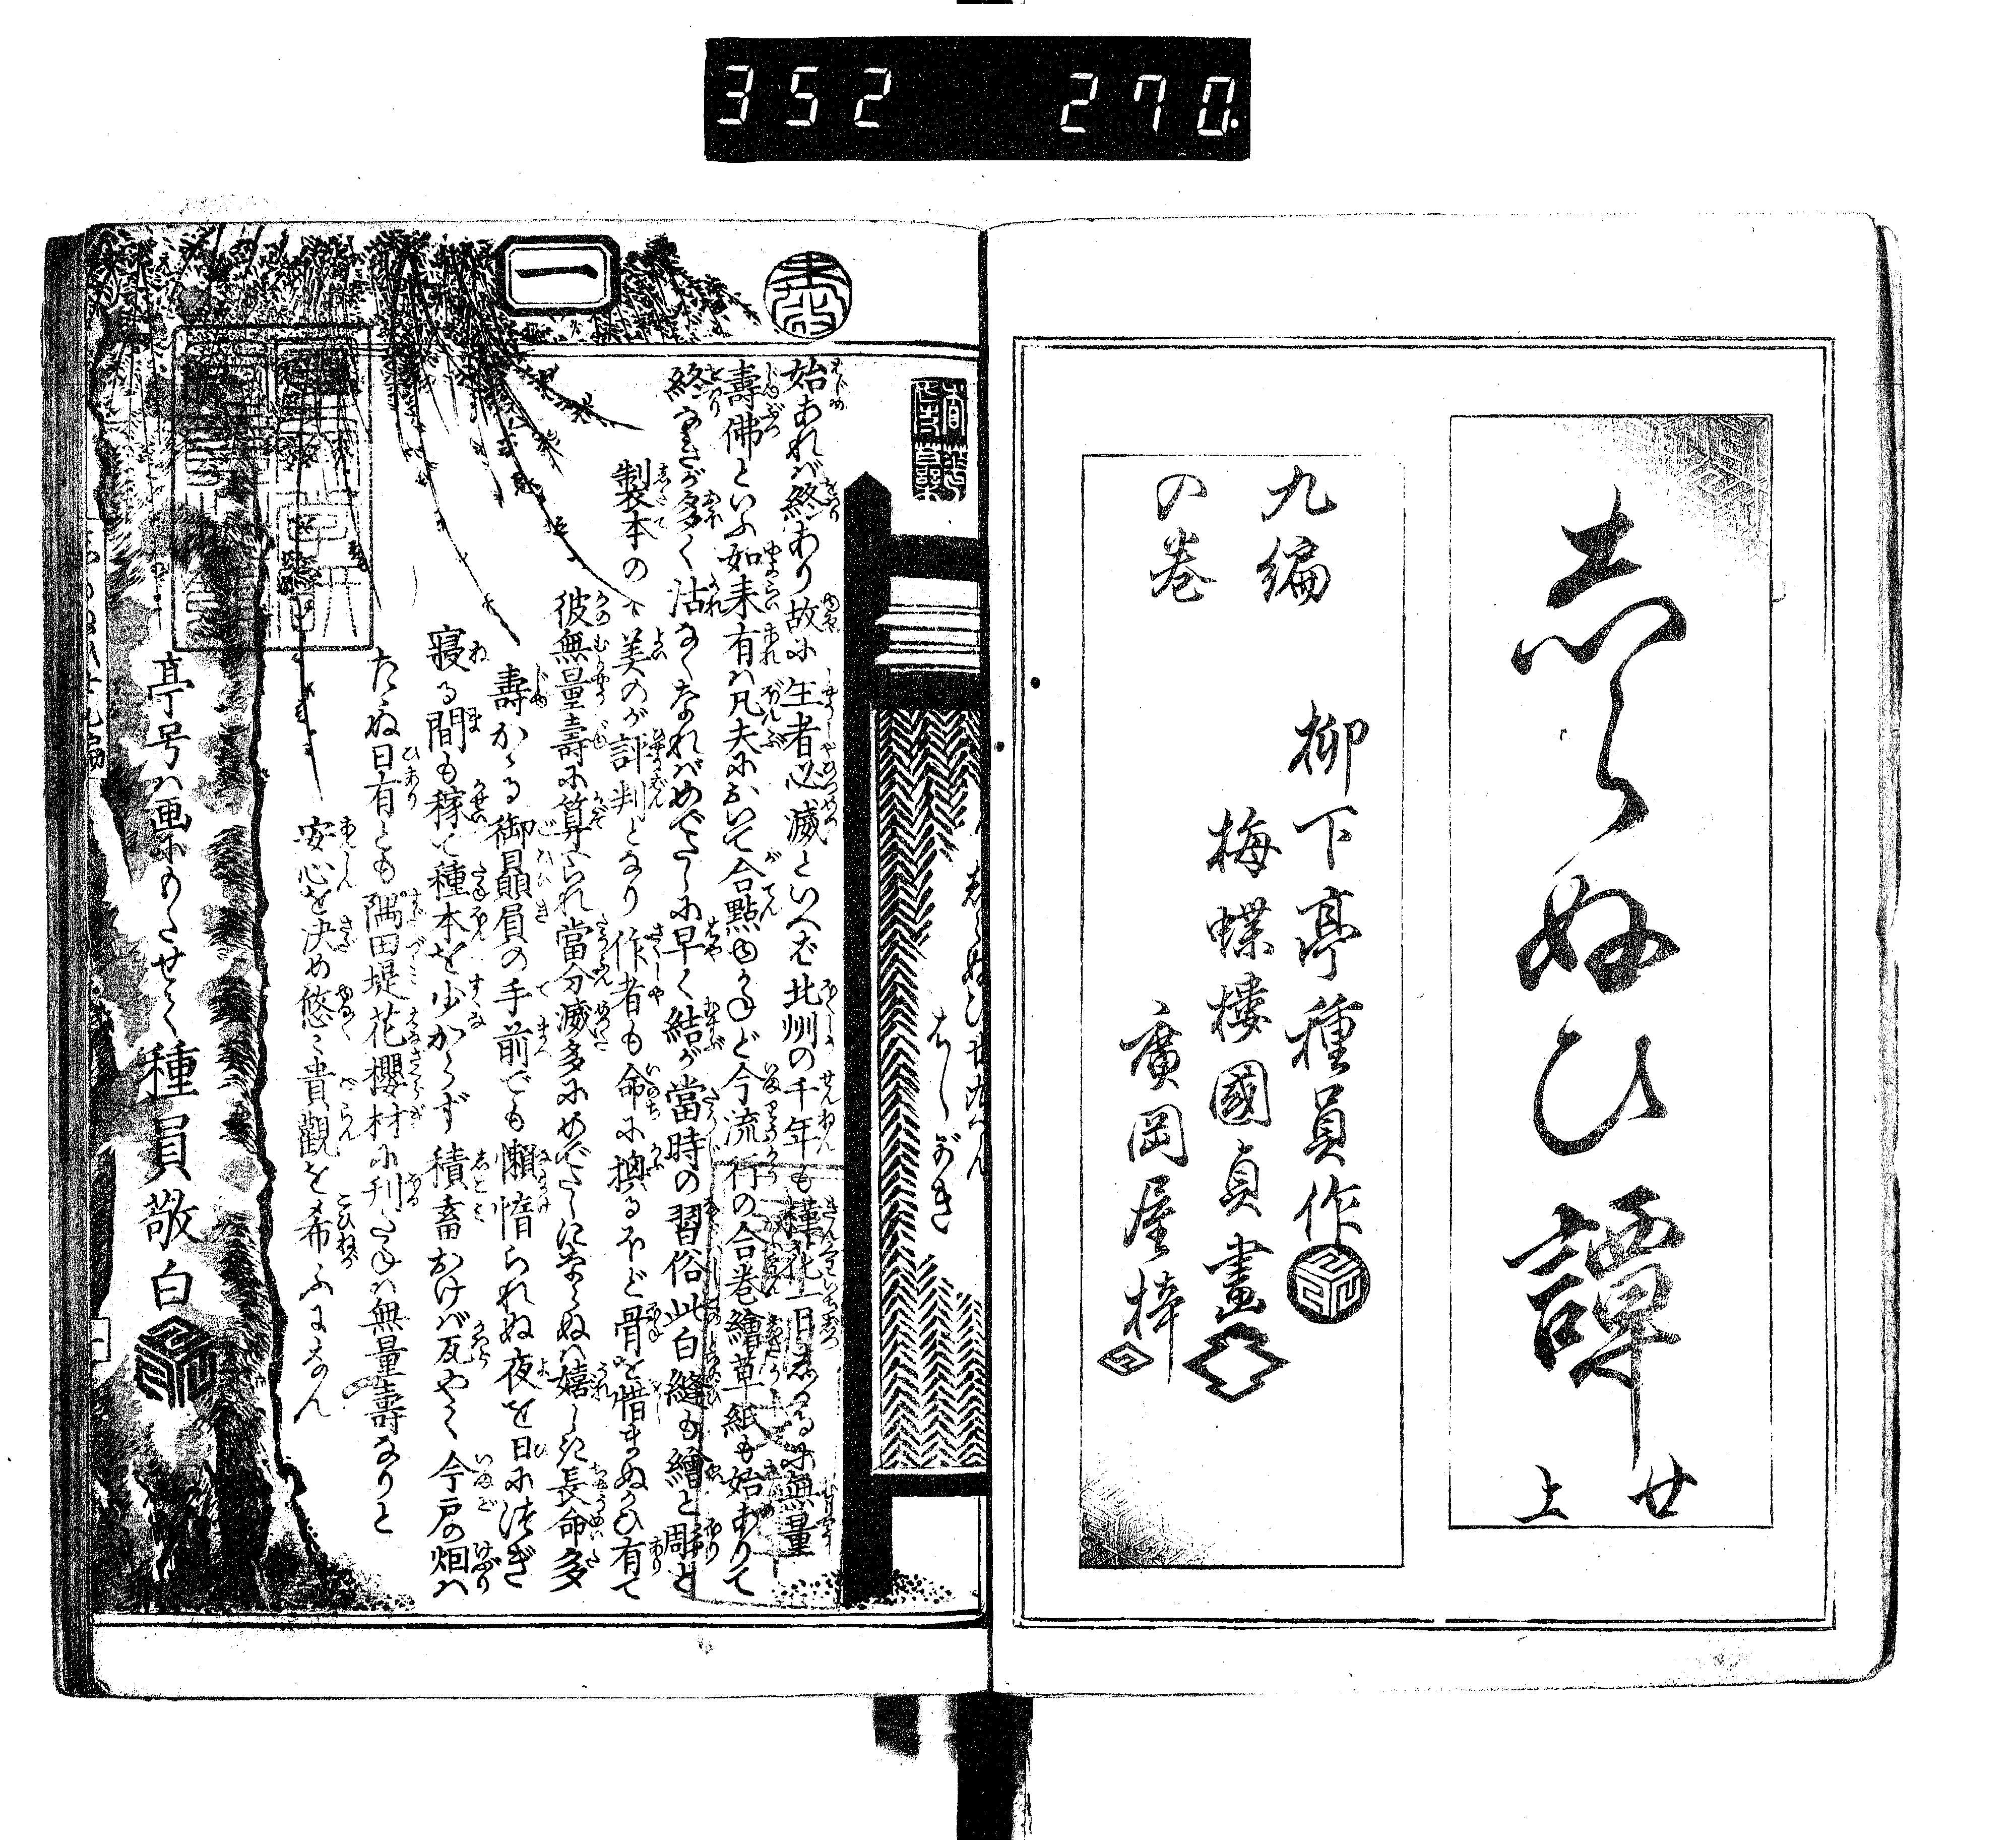 352 270.
志らぬひ譚
廿
上
九編
の巻
柳下亭種員作
梅蝶樓國貞畫
廣岡屋梓
一
志らぬひ廿九へん
はしがき
始あれバ終あり故に生者必滅といへど北州の千年も槿花一日
無量
壽佛といふ如来有ハ凡夫において合點ゆかねど今流行の合巻繪草紙も始ありて
終なきが多く沽なくなれバめでたしに早く結が當時の習俗此白縫も繪と彫と
製本の美のが評判となり作者も命に換るほど骨を惜まぬかひ有て
彼無量壽に算られ當分滅多にめでたしにならぬハ嬉しき長命多
壽かゝる御贔屓の手前でも懶惰られぬ夜を日に次ぎ
寝る間も稼て種本を少からず積畜おけバ瓦やく今戸の烟ハ
たえぬ日有とも隅田堤花櫻材に刊たねハ無量壽なりと
安心を決め悠々貴觀を希ふになん
亭号ハ画にのせて 種員敬白